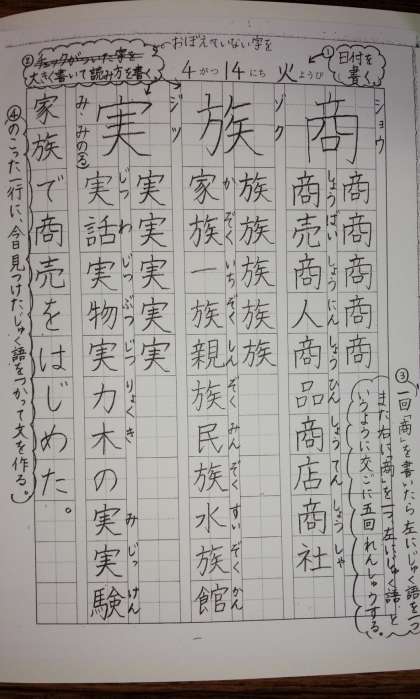 ①日付を書く
4がつ14にち 火ようび
おぼえていない字を
②チェックがついた字を
大きく書いて読み方を書く
ショウ
商
商商商商商
しょうばい しょうにん しょうひん しょうてん しょうしゃ
商売商人商品商店商社
ゾク
族
族族族族族
かぞく いちぞく しんぞく みんぞく すいぞくかん
家族一族親族民族水族館
ジツ
実
み・みの(る)
実実実実実
じつわ じつぶつ じつりょく きのみ じっけん
実話実物実力木の実実験
家族で商売をはじめた。
③一回「商」を書いたら左にじゅく語を一つ
また右に「商」を一つ左にじゅく語と
いうように交ごに五回れんしゅうする。
④のこった一行に、今日見つけたじゅく語をつかって文を作る。